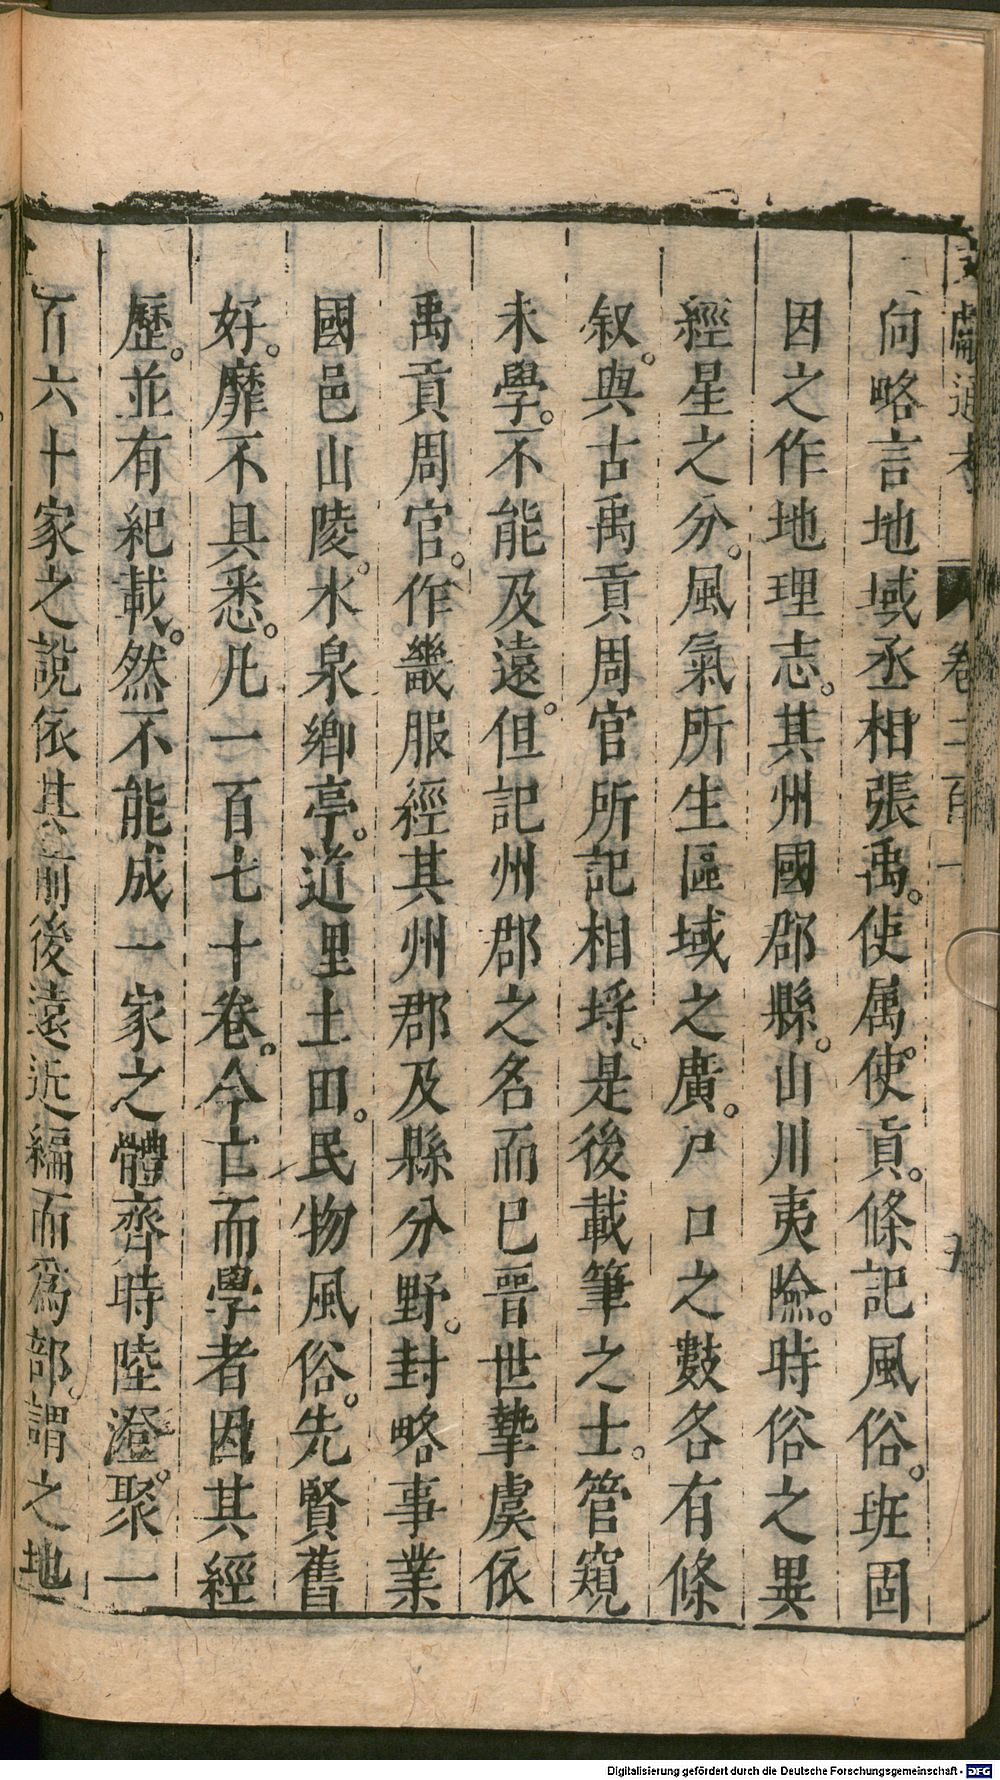 文獻通考 卷二百一
向略言地域丞相張禹。使属使貢。條記風俗。班固
因之作地理志。其州國郡縣。山川夷險。時俗之異
經星之分。風氣所生區域之廣。户口之數各有條
叙。與古禹貢周官所記相埒。是後載筆之士。管窺
末學。不能及遠。但記州郡之名而已晉世摯虞依
禹貢周官。作畿服經其州郡及縣分野。封略事業
國邑山陵。水泉鄉亭。道里土田。民物風俗。先賢舊
好。靡不具悉。凡一百七十卷。今亡而學者因其經
歷。並有紀載。然不能成一家之體齊時陸澄。聚一
百六十家之說依其前後遠近編而為部。謂之地
Digitalisierung gefördert durch die Deutsche Forschungsgemeinschaft - DFG